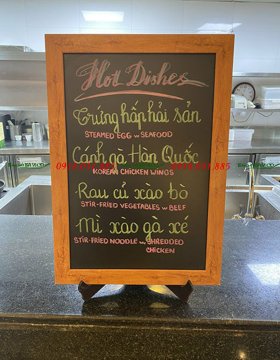 Hot Dishes
Trứng hấp hải sản
STEAMED EGG w SEAFOOD
Cánh gà Hàn Quốc
KOREAN CHICKEN WINGS
Rau củ xào bò
STIR-FRIED VEGETABLES w BEEF
Mì xào gà xé
STIR-FRIED NOODLE w SHREDDED
CHICKEN